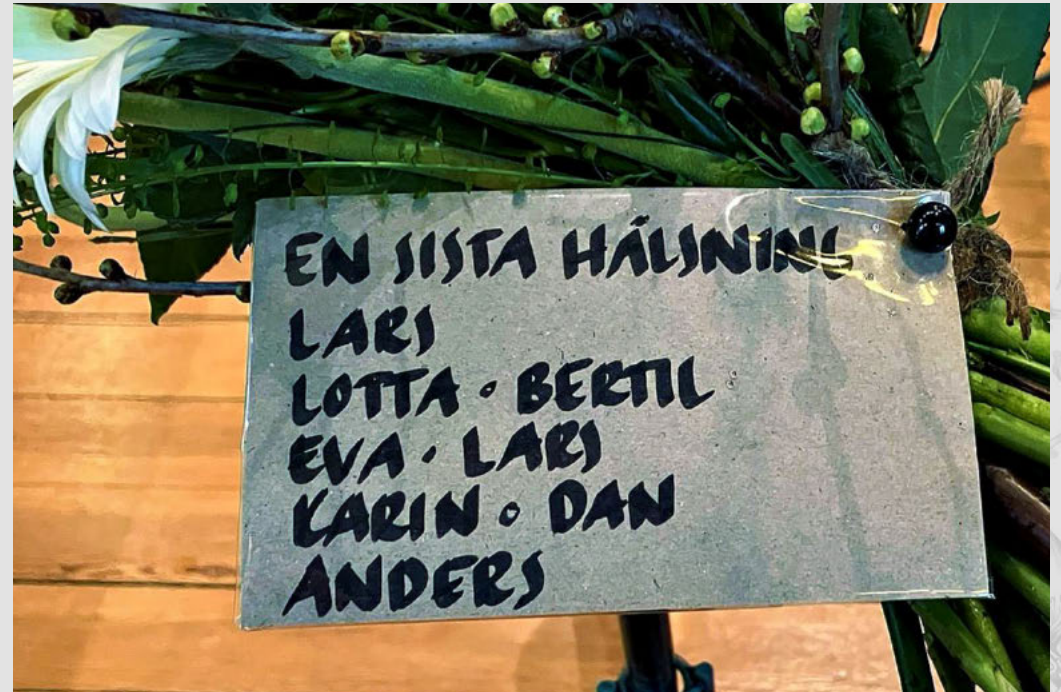 EN SISTA HÄLSNING
LARS
LOTTA • BERTIL
EVA • LARS
KARIN • DAN
ANDERS